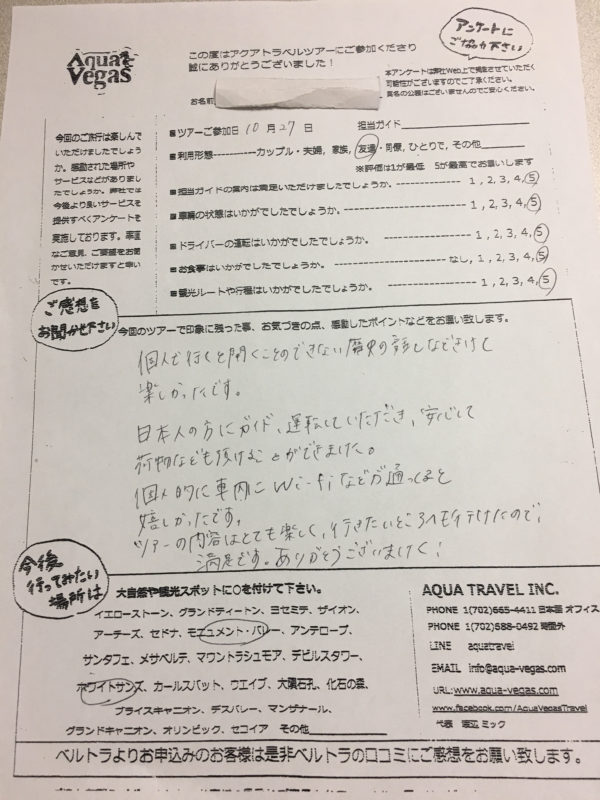 Aqua Vegas
この度はアクアトラベルツアーにご参加くださり
誠にありがとうございました！
アンケートに
ご協力下さい
本アンケートは弊社Web上で掲載させていただく
可能性がございますのでご了承ください。
実名の公表はございませんのでご安心ください。
お名前
今回のご旅行は楽しんで
いただけましたでしょう
か。感動された場所や
サービスなどがありまし
たでしょうか。弊社では
今後より良いサービスを
提供すべくアンケートを
実施しております。率直
なご意見、ご要望をお聞
かせいただけますと幸い
です。
■ツアーご参加日 10 月 27 日 担当ガイド
■利用形態-----------カップル・夫婦, 家族, 友達・同僚, ひとりで, その他
※評価は1が最低 5が最高でお願いします
■担当ガイドの案内は満足いただけましたでしょうか。---------------- 1 , 2, 3, 4, 5
■車輌の状態はいかがでしたでしょうか。---------------------------- 1 , 2, 3, 4, 5
■ドライバーの運転はいかがでしたでしょうか。---------------------- 1 , 2, 3, 4, 5
■お食事はいかがでしたでしょうか。------------------------- なし, 1, 2, 3, 4, 5
■観光ルートや行程はいかがでしたでしょうか。---------------------- 1 , 2, 3, 4, 5
ご感想を
お聞かせ下さい
今回のツアーで印象に残った事、お気づきの点、感動したポイントなどをお願い致します。
個人で行くと聞くことのできない歴史の話しなどきけて
楽しかったです。
日本人の方にガイド、運転していただき、安心して
荷物なども預けることができました。
個人的に車内に Wi-fiなどが通ってると
嬉しかったです。
ツアーの内容はとても楽しく、行きたいところへも行けたので、
満足です。ありがとうございました！
今後
行ってみたい
場所は
大自然や観光スポットに○を付けて下さい。
イエローストーン、グランドティートン、ヨセミテ、ザイオン、
アーチーズ、セドナ、モニュメント・バレー、アンテロープ、
サンタフェ、メサベルデ、マウントラシュモア、デビルスタワー、
ホワイトサンズ、カールスバット、ウエイブ、大隕石孔、化石の森、
ブライスキャニオン、デスバレー、マンザナール、
グランドキャニオン、オリンピック、セコイア その他
AQUA TRAVEL INC.
PHONE 1(702)665-4411 日本語 オフィス
PHONE 1(702)688-0492 時間外
LINE aquatravel
EMAIL info@aqua-vegas.com
URL: www.aqua-vegas.com
www.facebook.com/AquaVegasTravel
代表 渡辺 ミック
ベルトラよりお申込みのお客様は是非ベルトラの口コミにご感想をお願い致します。